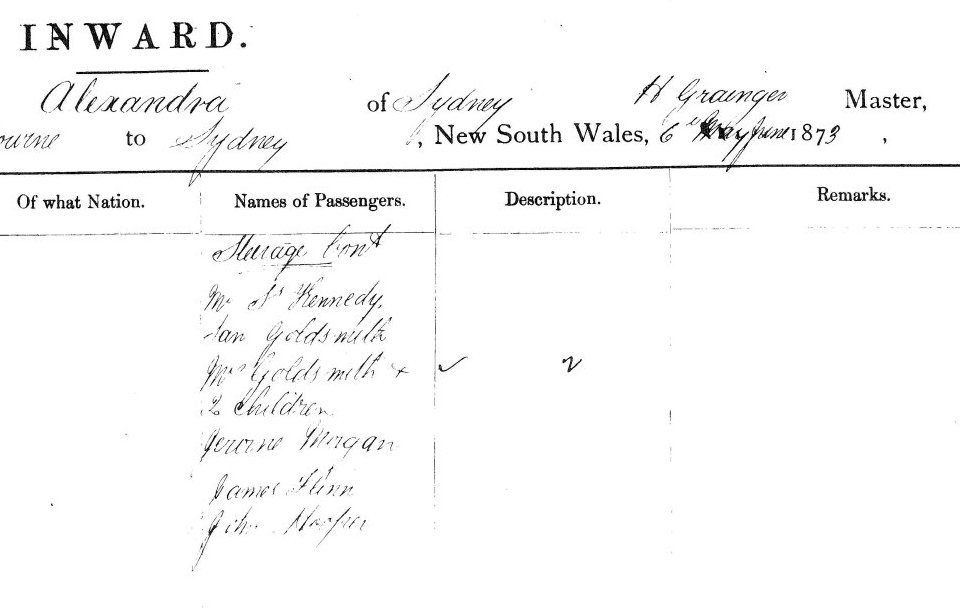 INWARD.
Alexandra of Sydney H Grainger Master,
ourne to Sydney, New South Wales, 6 June 1873,
Of what Nation. Names of Passengers. Description. Remarks.
Steerage Cont
Mr Kennedy.
Goldsmith
Mrs Goldsmith + ✓ 2
2 Children
Jerome Morgan
James Flinn
John Hooper